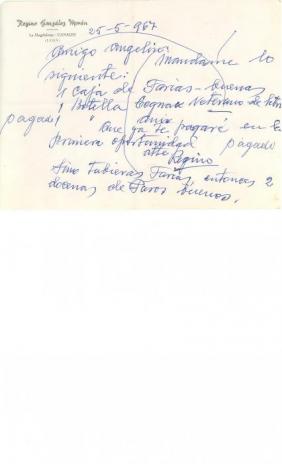 Regino González Morán
La Magdalena - CANALES
(LEÓN)
25-5-967
Amigo Angelín:
Mandame lo
siguiente:
1 Caja de Farias - buenas
1 Botella Cognac Veterano de litro
pagado 1 " Anis
Que ya te pagaré en la
primera oportunidad pagado
atte
Regino
Sino tubieras Farias, entonces 2
docenas de Puros buenos.